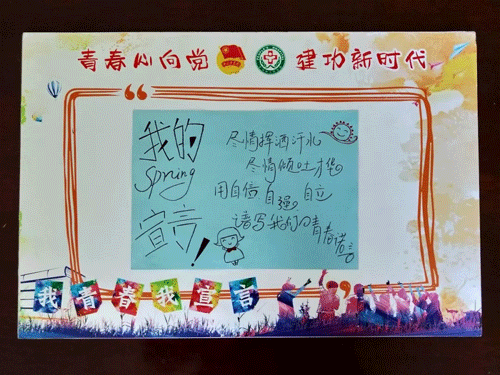 青春心向党 建功新时代
我的
Spring
宣言!
尽情挥洒汗水
尽情倾吐才华
用自信自强自立
谱写我们的青春诺言
我青春我宣言